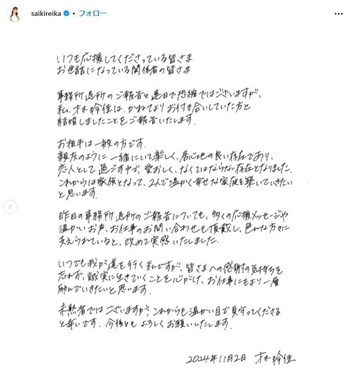 saikireika • フォロー
いつも応援してくださっている皆さま
お世話になっている関係者の皆さま
事務所退所のご報告と連日で恐縮ではございますが、
私、才木玲佳は、かねてよりお付き合いしていた方と
結婚しましたことをご報告いたします。
お相手は一般の方です。
親友のように一緒にいて楽しく、居心地の良い存在であり、
恋人として過ごす中で、愛おしく、なくてはならない存在となりました。
これからは家族となって、2人で温かく幸せな家庭を築いていきたい
と思います。
昨日の事務所退所のご報告についても、多くの応援メッセージや
温かいお声、お仕事のお問い合わせも頂戴し、色んな方々に
支えられていると、改めて実感いたしました。
いつでも我が道を行く私ですが、皆さまへの感謝の気持ちを
忘れず、誠実に生きていくことを心がけ、お仕事にもより一層
励んでいきたいと思います。
未熟者ではございますが、これからも温かい目で見守ってくださる
と幸いです。今後ともよろしくお願いいたします。
2024年11月2日 才木玲佳